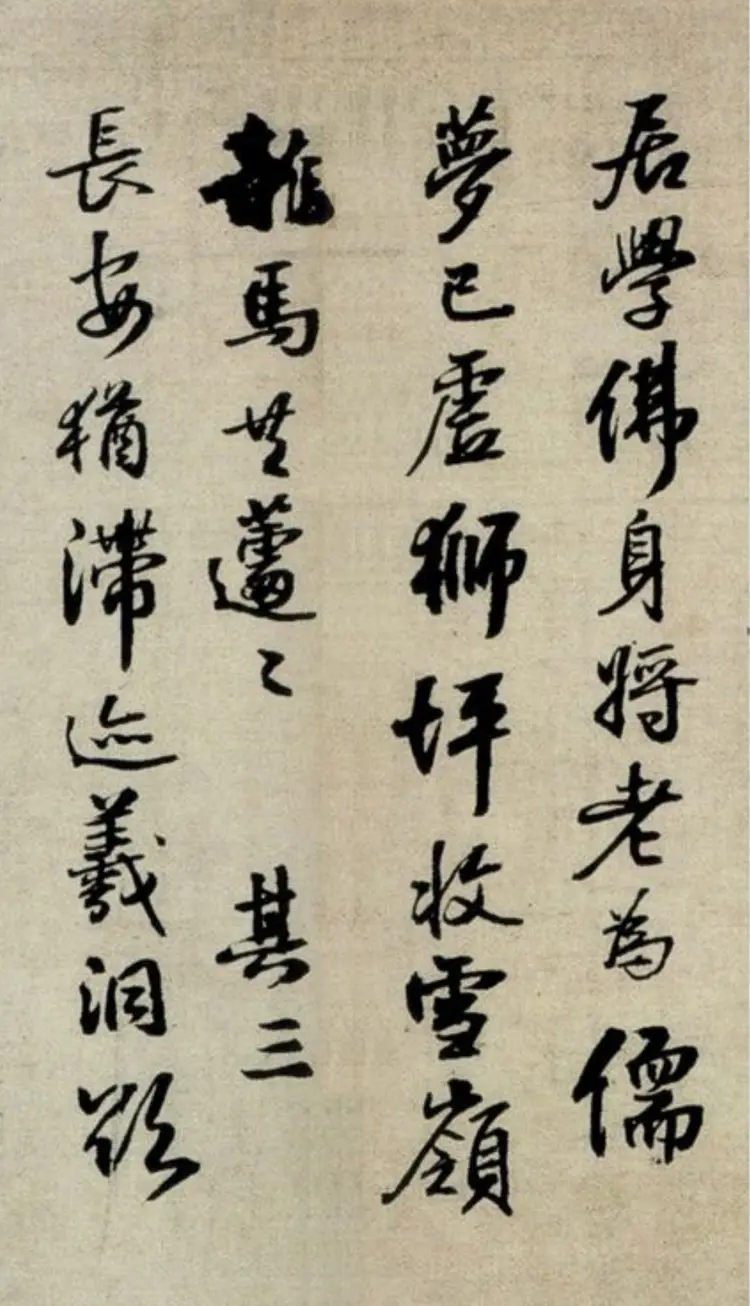 居學佛身將老為儒
夢已虛獅坪收雪嶺
龍馬共蘧〻 其三
長安猶滯迹羲洄欲